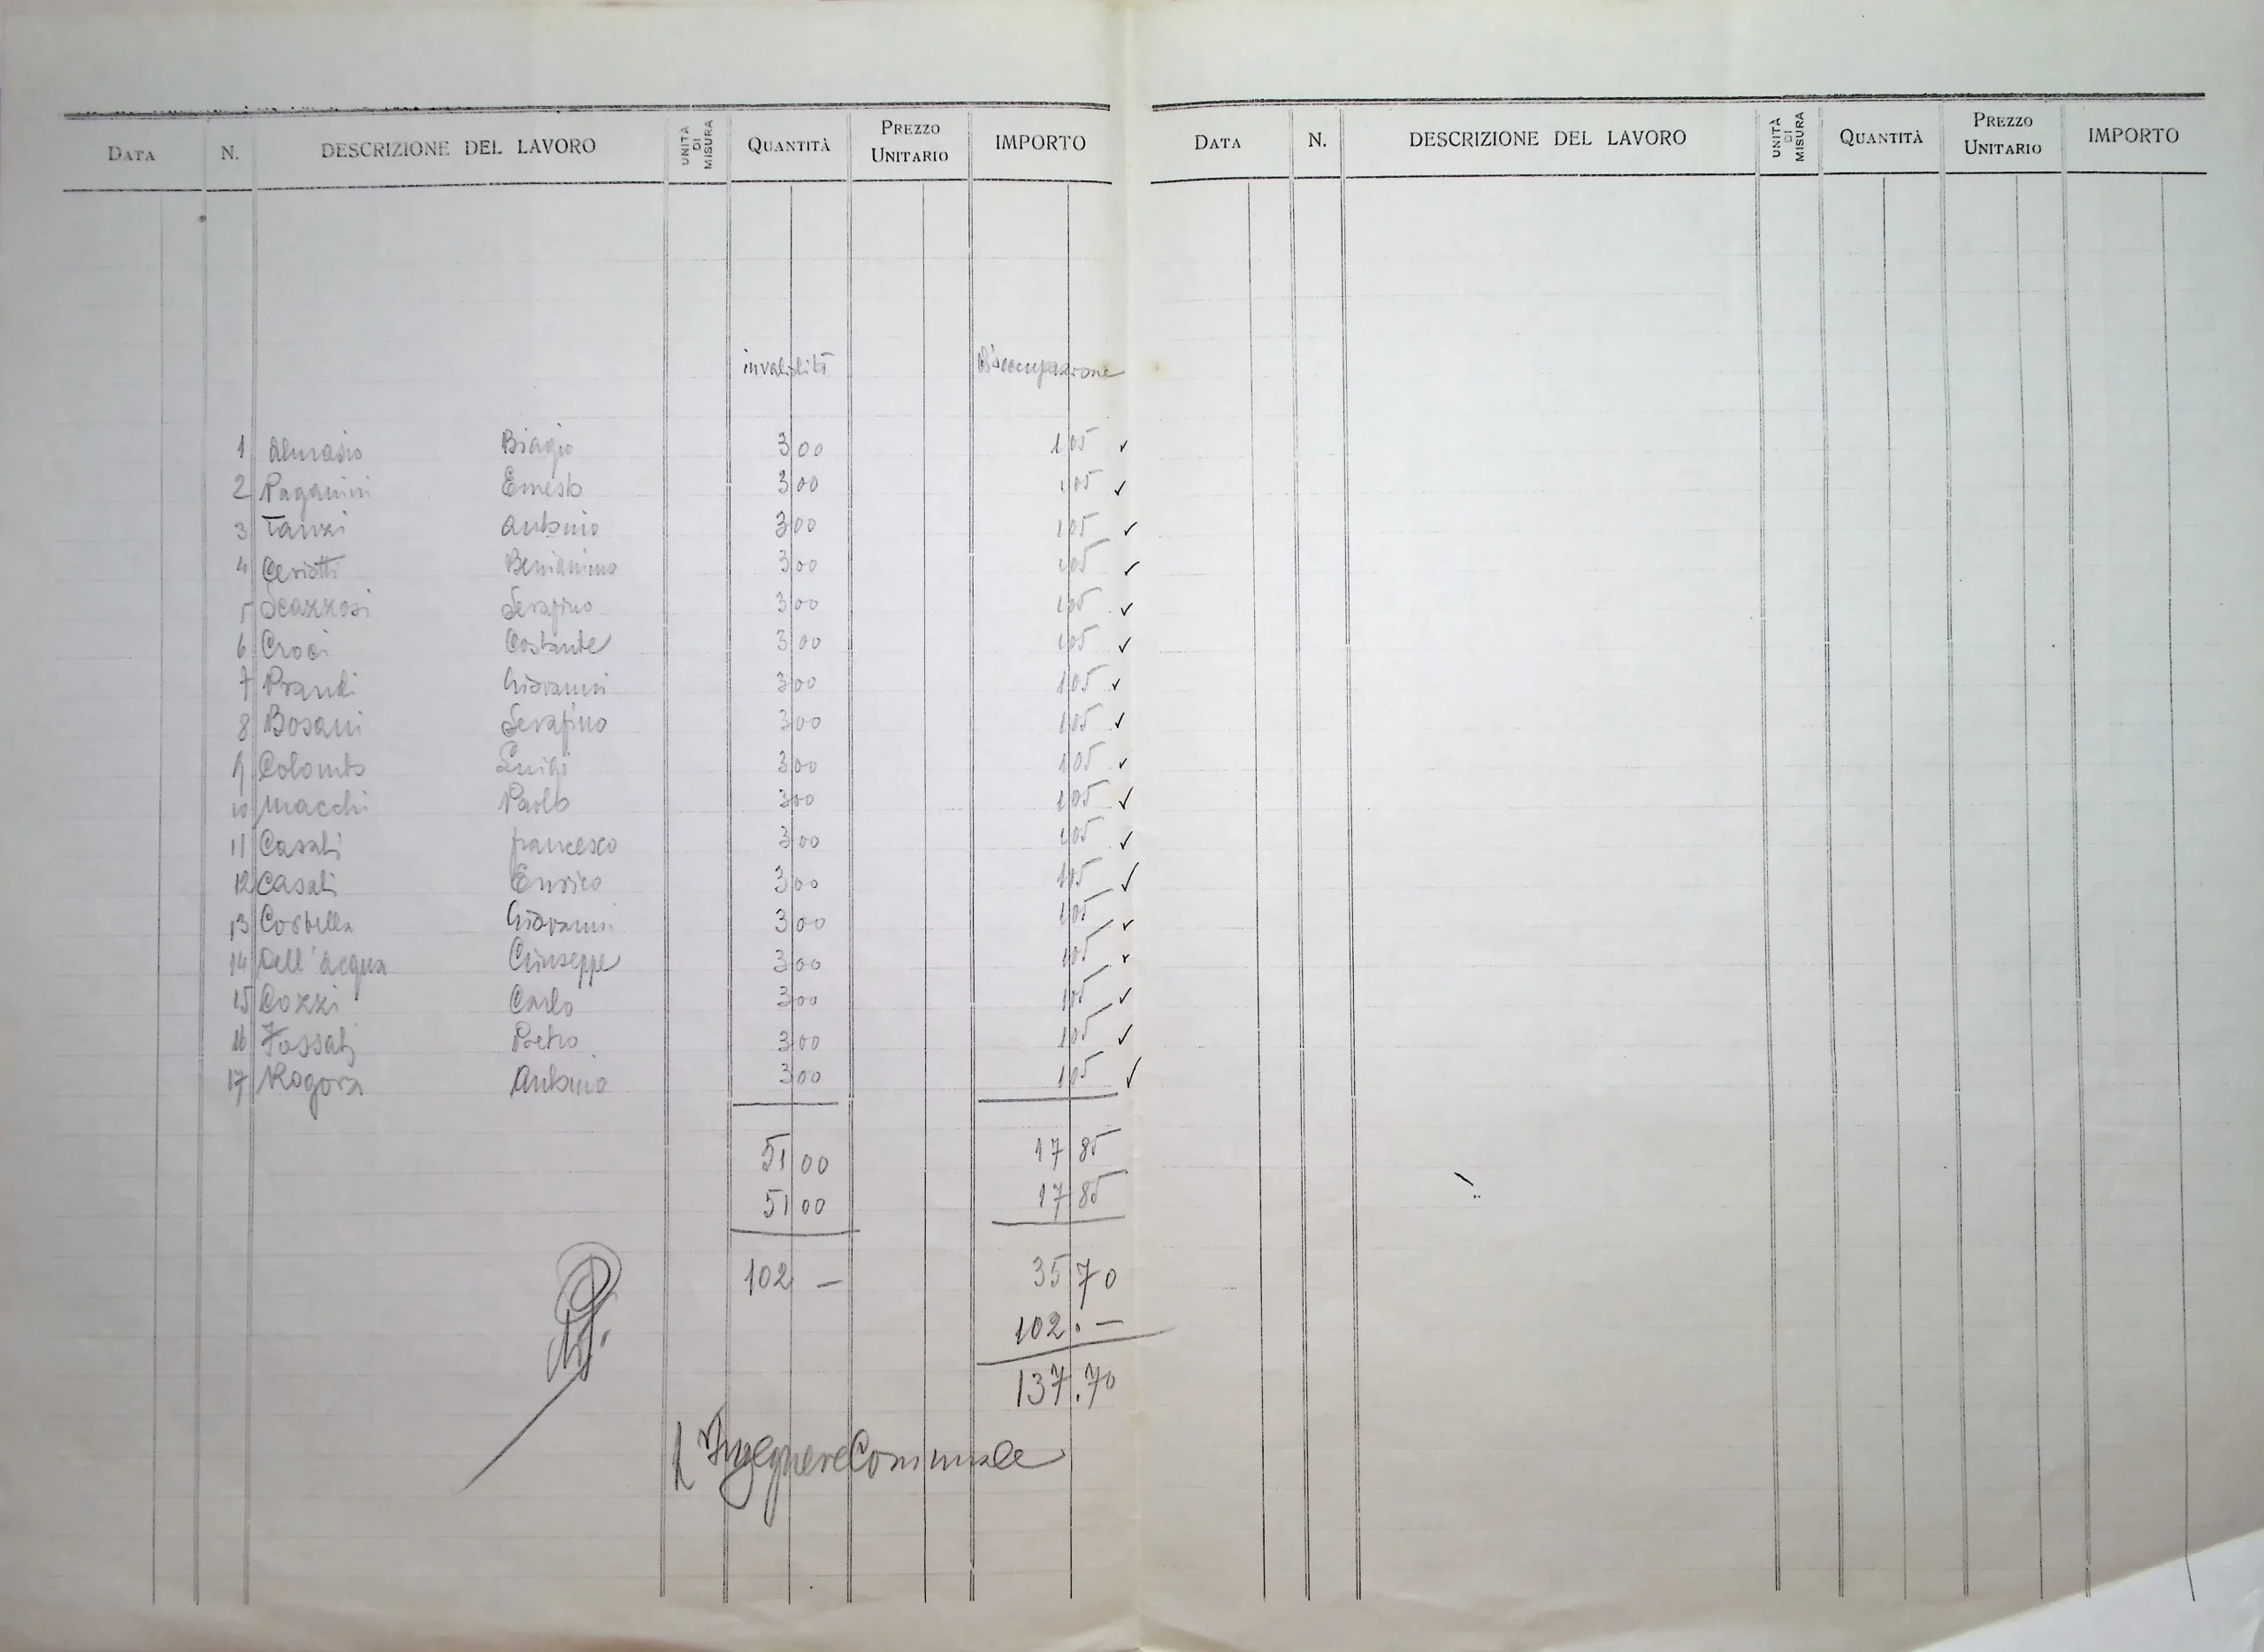 DATA N. DESCRIZIONE DEL LAVORO UNITÀ DI MISURA QUANTITÀ PREZZO UNITARIO IMPORTO
invalidità disoccupazione
1 Almasio Biagio 3 00 1 05 ✓
2 Paganini Ernesto 3 00 1 05 ✓
3 Tanzi Antonio 3 00 1 05 ✓
4 Ceriotti Beniamino 3 00 1 05 ✓
5 Scazzosi Serafino 3 00 1 05 ✓
6 Croci Costante 3 00 1 05 ✓
7 Prandi Giovanni 3 00 1 05 ✓
8 Bosani Serafino 3 00 1 05 ✓
9 Colombo Luigi 3 00 1 05 ✓
10 Macchi Paolo 3 00 1 05 ✓
11 Casati francesco 3 00 1 05 ✓
12 Casati Enrico 3 00 1 05 ✓
13 Giovanni 3 00 1 05 ✓
14 Dell'acqua Giuseppe 3 00 1 05 ✓
15 Cozzi Carlo 3 00 1 05 ✓
16 Fossati Pietro 3 00 1 05 ✓
17 Rogora Antonio 3 00 1 05 ✓
51 00 17 85
51 00 17 85
102 — 35 70
102 . —
137.70
l'Ingegnere Comunale
DATA N. DESCRIZIONE DEL LAVORO UNITÀ DI MISURA QUANTITÀ PREZZO UNITARIO IMPORTO